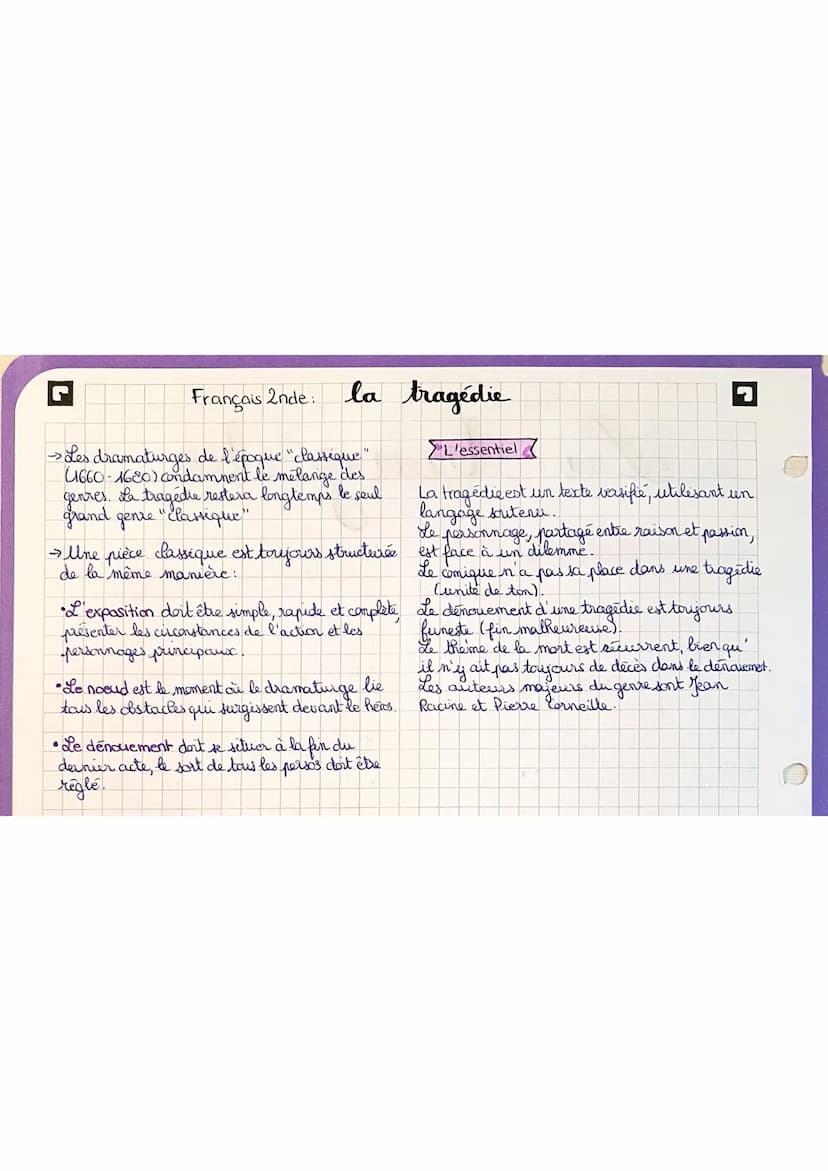 Français 2nde : la tragédie
→ Les dramaturges de l'époque "classique"
(1660-1680) condamnent le mélange des
genres. La tragédie restera longtemps le seul
grand genre "classique"
→ Une pièce classique est toujours structurée
de la même manière :
• L'exposition doit être simple, rapide et complète,
présenter les circonstances de l'action et les
personnages principaux.
• Le noeud est le moment où le dramaturge lie
tous les obstacles qui surgissent devant le héros.
• Le dénouement doit se situer à la fin du
dernier acte, le sort de tous les persos doit être
réglé.
L'essentiel
La tragédie est un texte versifié, utilisant un
langage soutenu.
Le personnage, partagé entre raison et passion,
est face à un dilemme.
Le comique n'a pas sa place dans une tragédie
(unité de ton).
Le dénouement d'une tragédie est toujours
funeste (fin malheureuse).
Le thème de la mort est récurrent, bien qu'
il n'y ait pas toujours de décès dans le dénouemet.
Les auteurs majeurs du genre sont Jean
Racine et Pierre Corneille.